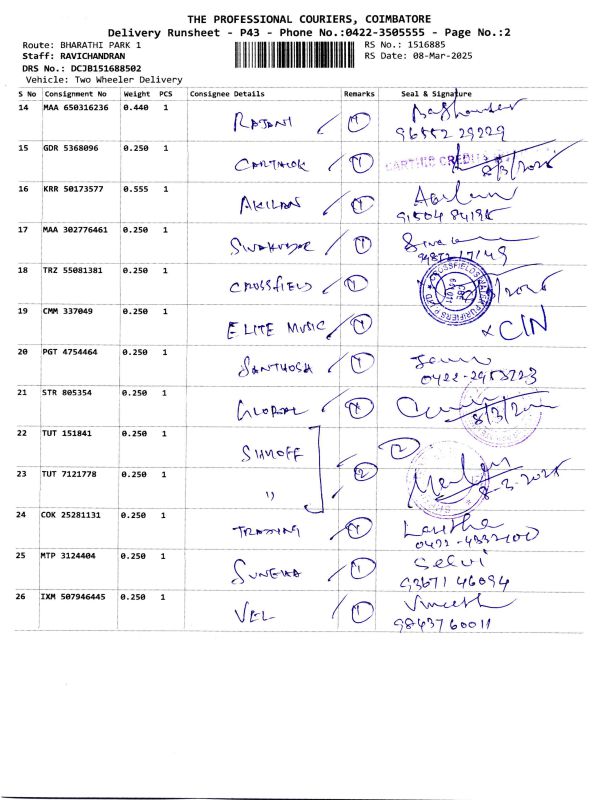 THE PROFESSIONAL COURIERS, COIMBATORE
Delivery Runsheet - P43 - Phone No.:0422-3505555 - Page No.:2
Route: BHARATHI PARK 1 RS No.: 1516885
Staff: RAVICHANDRAN RS Date: 08-Mar-2025
DRS No.: DCJB151688502
Vehicle: Two Wheeler Delivery
S No Consignment No Weight PCS Consignee Details Remarks Seal & Signature
14 MAA 650316236 0.440 1 RAJANI 1
96552 29229
15 GDR 5368096 0.250 1 1 8/3/2025
16 KRR 50173577 0.555 1 AKILAN 1
17 MAA 302776461 0.250 1 SIVAKUMAR 1
18 TRZ 55081381 0.250 1 CROSSFIELD 1
19 CMM 337049 0.250 1 ELITE MUSIC 1 CIN
20 PGT 4754464 0.250 1 SANTHOSH 1
0422-2953223
21 STR 805354 0.250 1 GLOBAL 1 8/3/2025
22 TUT 151841 0.250 1 SIMOFF 2
23 TUT 7121778 0.250 1 " 2 8-3-2025
24 COK 25281131 0.250 1 TRADING 1 Lavitha
0422-4332100
25 MTP 3124404 0.250 1 1 Selvi
93671 46094
26 IXM 507946445 0.250 1 VEL 1 Vineeth
98437 60011